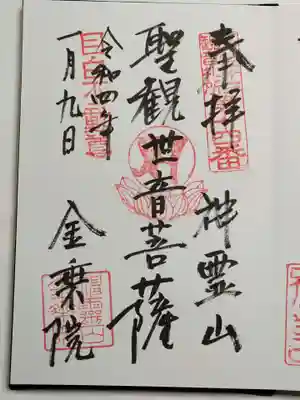 奉拝
神霊山
聖観世音菩薩
令和四年
一月九日
目白不動尊
金乗院